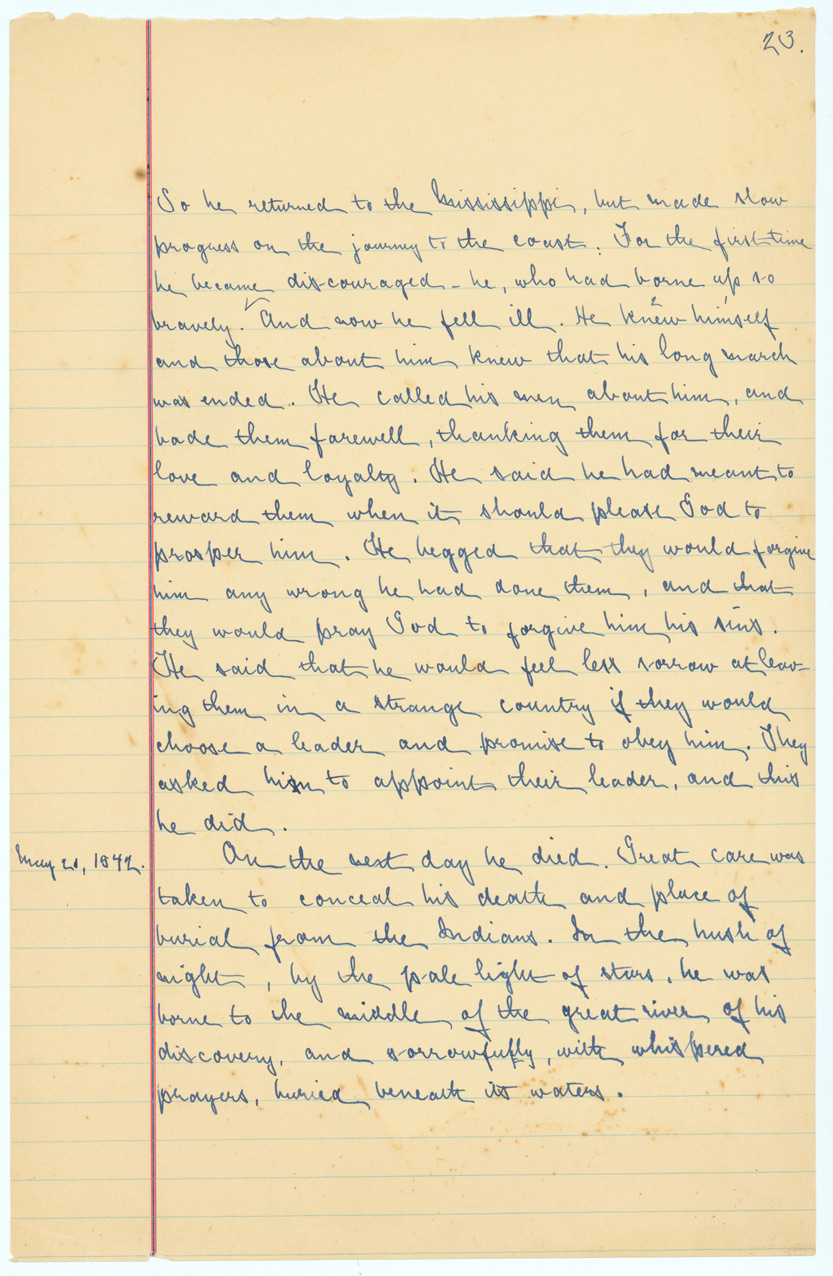 23.
So he returned to the Mississippi, but made slow
progress on the journey to the coast. For the first time
he became discouraged - he, who had borne up so
bravely. And now he fell ill. He knew himself
and those about him knew that his long march
was ended. He called his men about him, and
bade them farewell, thanking them for their
love and loyalty. He said he had meant to
reward them when it should please God to
prosper him. He begged that they would forgive
him any wrong he had done them, and that
they would pray God to forgive him his sins.
He said that he would feel less sorrow at leav-
ing them in a strange country if they would
choose a leader and promise to obey him. They
asked him to appoint their leader, and this
he did.
May 21, 1842. On the next day he died. Great care was
taken to conceal his death and place of
burial from the Indians. In the hush of
night, by the pale light of stars, he was
borne to the middle of the great river of his
discovery, and sorrowfully, with whispered
prayers, buried beneath its waters.